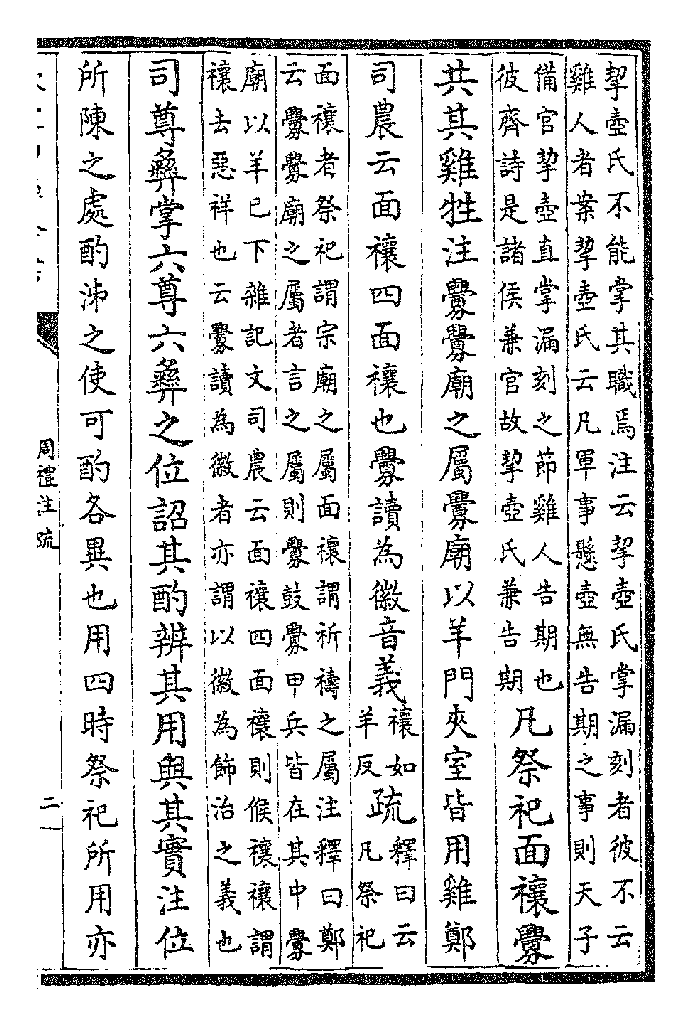 挈壺氏不能掌其職焉注云挈壺氏掌漏刻者彼不云
雞人者案挈壺氏云凡軍事懸壺無告期之事則天子
備官挈壺直掌漏刻之節雞人告期也
彼齊詩是諸侯兼官故挈壺氏兼告期
凡祭祀面禳釁
共其雞牲注釁釁廟之屬釁廟以羊門夾室皆用雞鄭
司農云面禳四面禳也釁讀為徽音義
禳如
羊反
疏
釋曰云
凡祭祀
面禳者祭祀謂宗廟之屬面禳謂祈禱之屬注釋曰鄭
云釁釁廟之屬者言之屬則釁鼓釁甲兵皆在其中釁
廟以羊已下雜記文司農云面禳四面禳則候禳禳謂
禳去惡祥也云釁讀為徽者亦謂以徽為飾治之義也
司尊彝掌六尊六彝之位詔其酌辨其用與其實注位
所陳之處酌泲之使可酌各異也用四時祭祀所用亦
周禮注疏
二